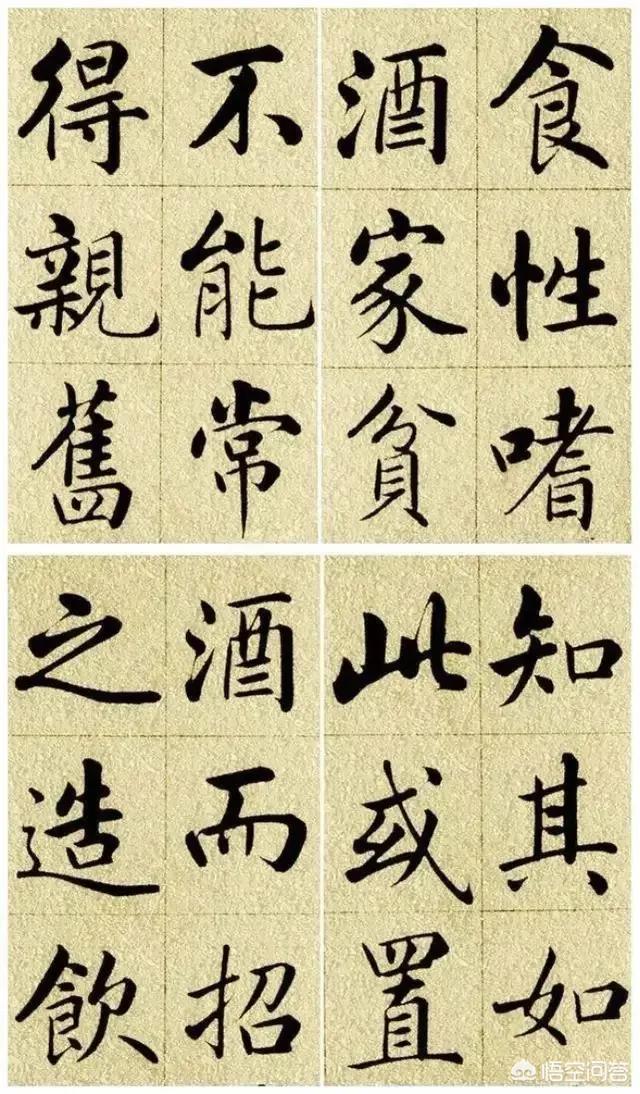 食性嗜
酒家貧
不能常
得親舊
知其如
此或置
酒而招
之造飲
悟空问答